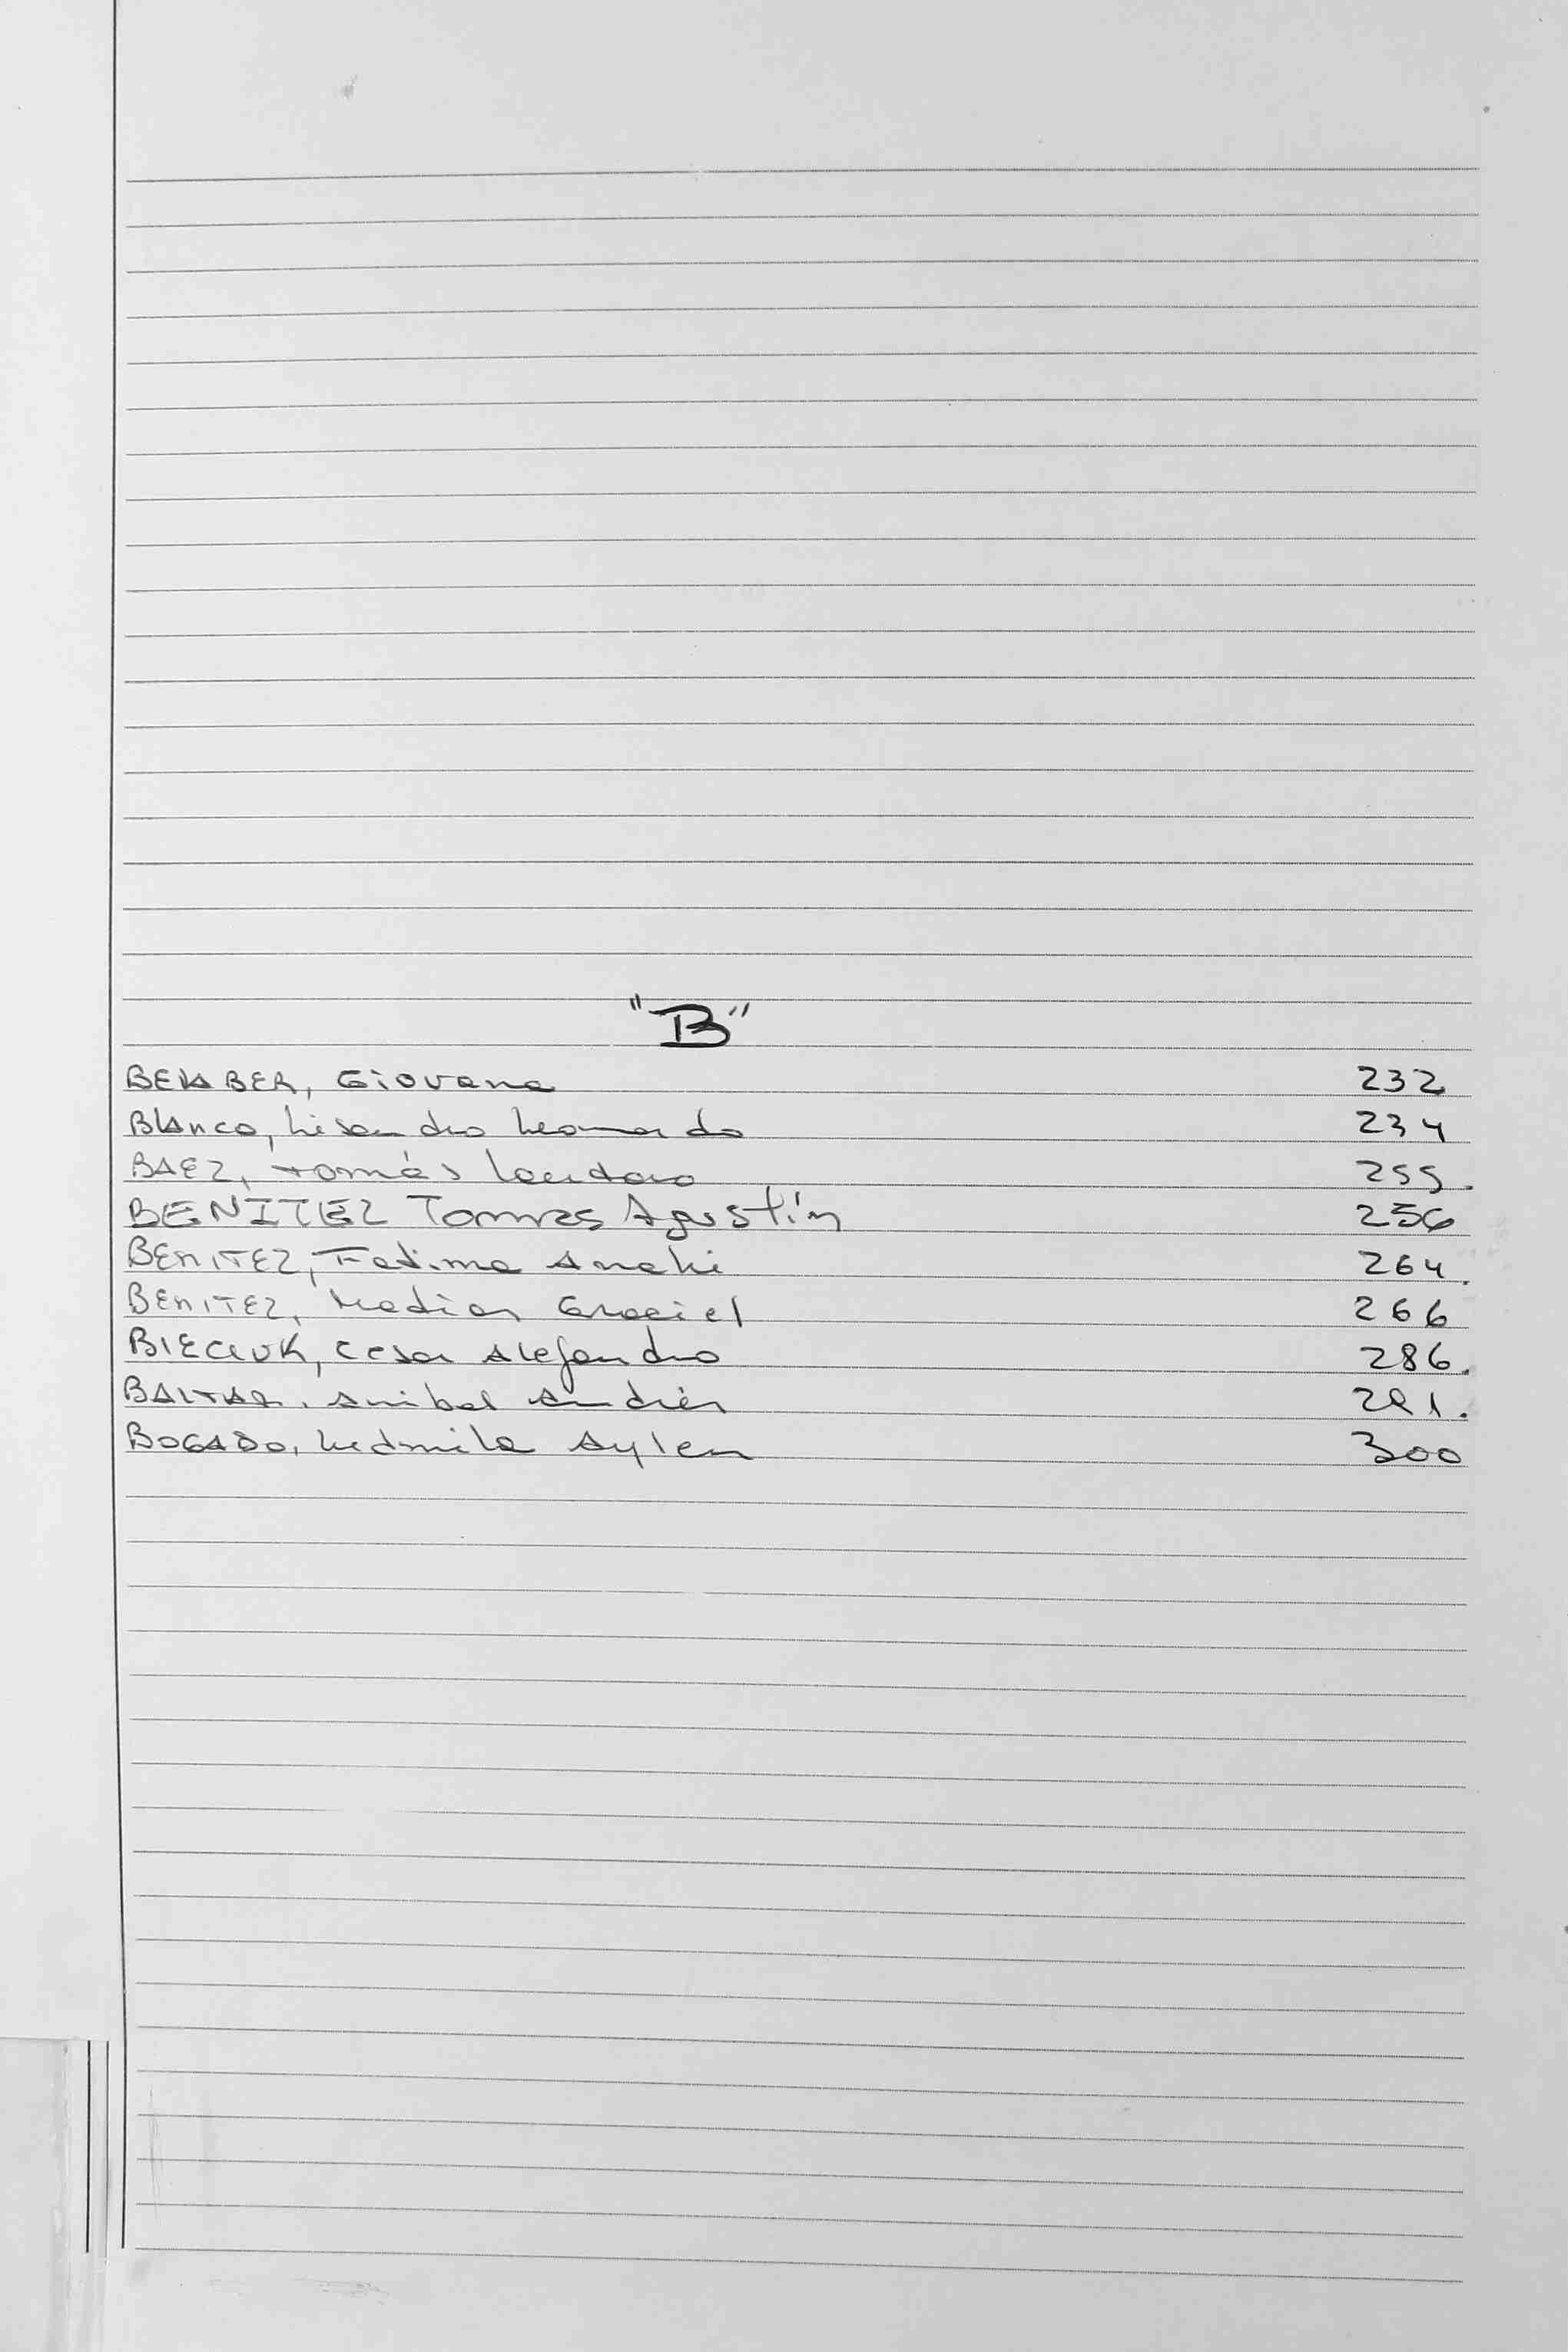 "B"
BEMBER, Giovana 232
Blanco, Lisandro Leonardo 234
BAEZ, Tomás Lautaro 255.
BENITEZ Tomas Agustín 256
BENITEZ, Fatima Anahi 264.
BENITEZ, Matias Graciel 266
BIECLUK, Cesar Alejandro 286.
BALTAR, Anibal Andrés 291.
BOGADO, Ludmila Aylen 300